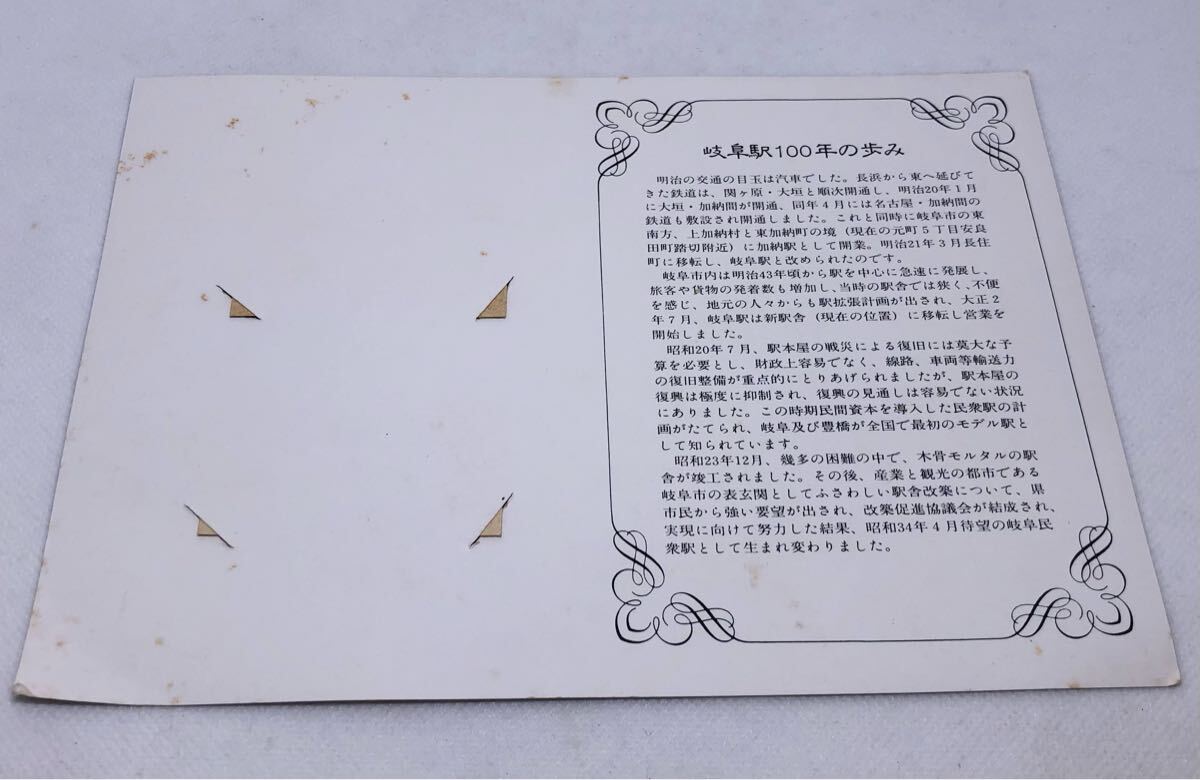 岐阜駅100年の歩み
明治の交通の目玉は汽車でした。長浜から東へ延びて
きた鉄道は、関ヶ原・大垣と順次開通し、明治20年1月
に大垣・加納間が開通、同年4月には名古屋・加納間の
鉄道も敷設され開通しました。これと同時に岐阜市の東
南方、上加納村と東加納町の境（現在の元町5丁目安良
田町踏切附近）に加納駅として開業。明治21年3月長住
町に移転し、岐阜駅と改められたのです。
岐阜市内は明治43年頃から駅を中心に急速に発展し、
旅客や貨物の発着数も増加し、当時の駅舎では狭く、不便
を感じ、地元の人々からも駅拡張計画が出され、大正2
年7月、岐阜駅は新駅舎（現在の位置）に移転し営業を
開始しました。
昭和20年7月、駅本屋の戦災による復旧には莫大な予
算を必要とし、財政上容易でなく、線路、車両等輸送力
の復旧整備が重点的にとりあげられましたが、駅本屋の
復興は極度に抑制され、復興の見通しは容易でない状況
にありました。この時期民間資本を導入した民衆駅の計
画がたてられ、岐阜及び豊橋が全国で最初のモデル駅と
して知られています。
昭和23年12月、幾多の困難の中で、木骨モルタルの駅
舎が竣工されました。その後、産業と観光の都市である
岐阜市の表玄関としてふさわしい駅舎改築について、県
市民から強い要望が出され、改築促進協議会が結成され、
実現に向けて努力した結果、昭和34年4月待望の岐阜民
衆駅として生まれ変わりました。